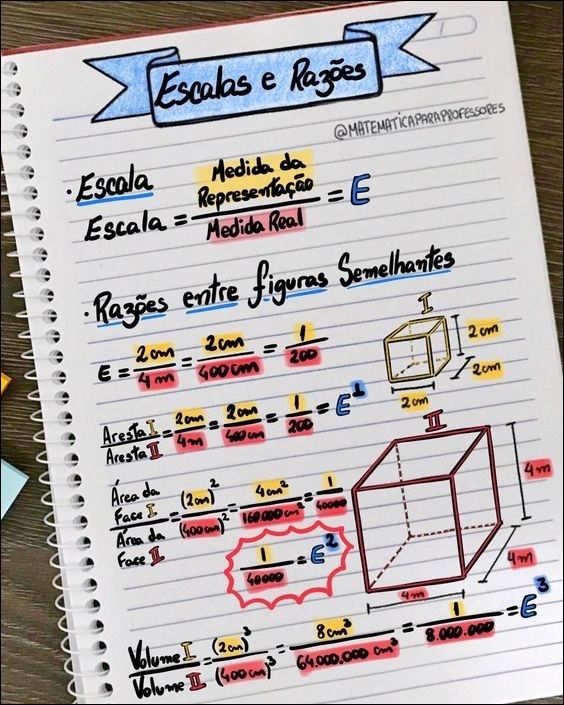 Escalas e Razões
@MATEMATICAPARAPROFESSORES
· Escala
Escala = Medida da Representação / Medida Real = E
· Razões entre figuras Semelhantes
E = 2cm / 4m = 2cm / 400cm = 1 / 200
I
2cm
2cm
2cm
Aresta I / Aresta II = 2cm / 4m = 2cm / 400cm = 1 / 200 = E¹
II
4m
4m
4m
Área da Face I / Área da Face II = (2cm)² / (400cm)² = 4cm² / 160.000cm² = 1 / 40000
1 / 40000 = E²
Volume I / Volume II = (2cm)³ / (400cm)³ = 8cm³ / 64.000.000 cm³ = 1 / 8.000.000 = E³